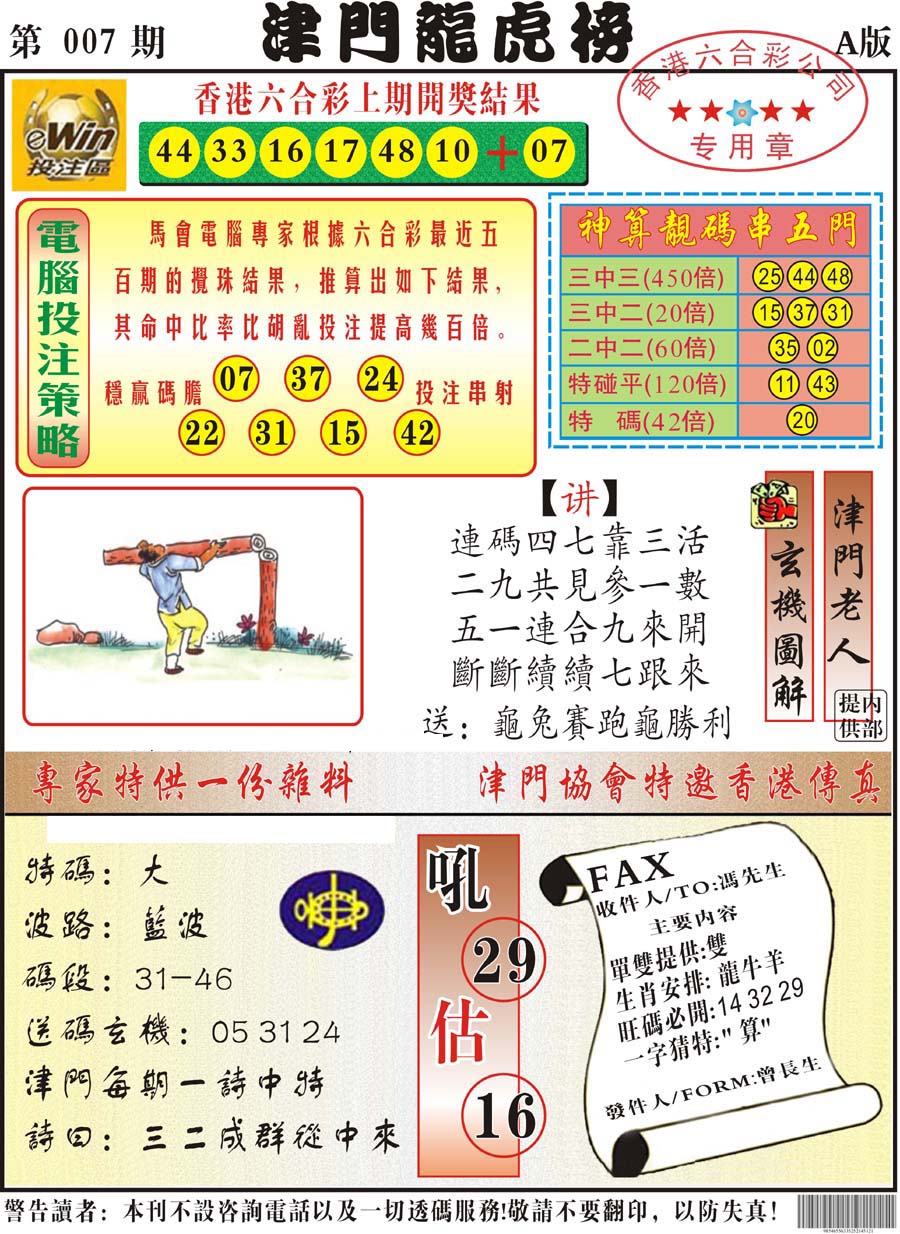 第 007 期
津門龍虎榜
A版
eWin
投注區
香港六合彩上期開獎結果
44 33 16 17 48 10 + 07
香港六合彩公司
专用章
電腦投注策略
馬會電腦專家根據六合彩最近五
百期的攪珠結果，推算出如下結果，
其命中比率比胡亂投注提高幾百倍。
穩贏碼膽 07 37 24 投注串射
22 31 15 42
神算靚碼串五門
三中三(450倍) 25 44 48
三中二(20倍) 15 37 31
二中二(60倍) 35 02
特碰平(120倍) 11 43
特 碼(42倍) 20
【讲】
連碼四七靠三活
二九共見參一數
五一連合九來開
斷斷續續七跟來
送：龜兔賽跑龜勝利
玄機圖解
津門老人
內部提供
專家特供一份雜料
津門協會特邀香港傳真
特碼：大
波路：藍波
碼段：31-46
送碼玄機：05 31 24
津門每期一詩中特
詩曰：三二成群從中來
吼
29
估
16
FAX
收件人/TO:馮先生
主要內容
單雙提供:雙
生肖安排: 龍牛羊
旺碼必開:14 32 29
一字猜特:"算"
發件人/FORM:曾長生
警告讀者：本刊不設咨詢電話以及一切透碼服務!敬請不要翻印，以防失真！